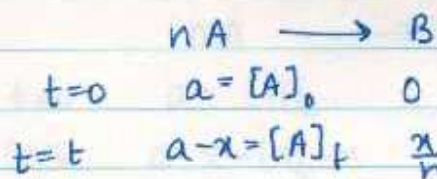 n A ⟶ B
t=0 a = [A]₀ 0
t=t a-x = [A]t x/n